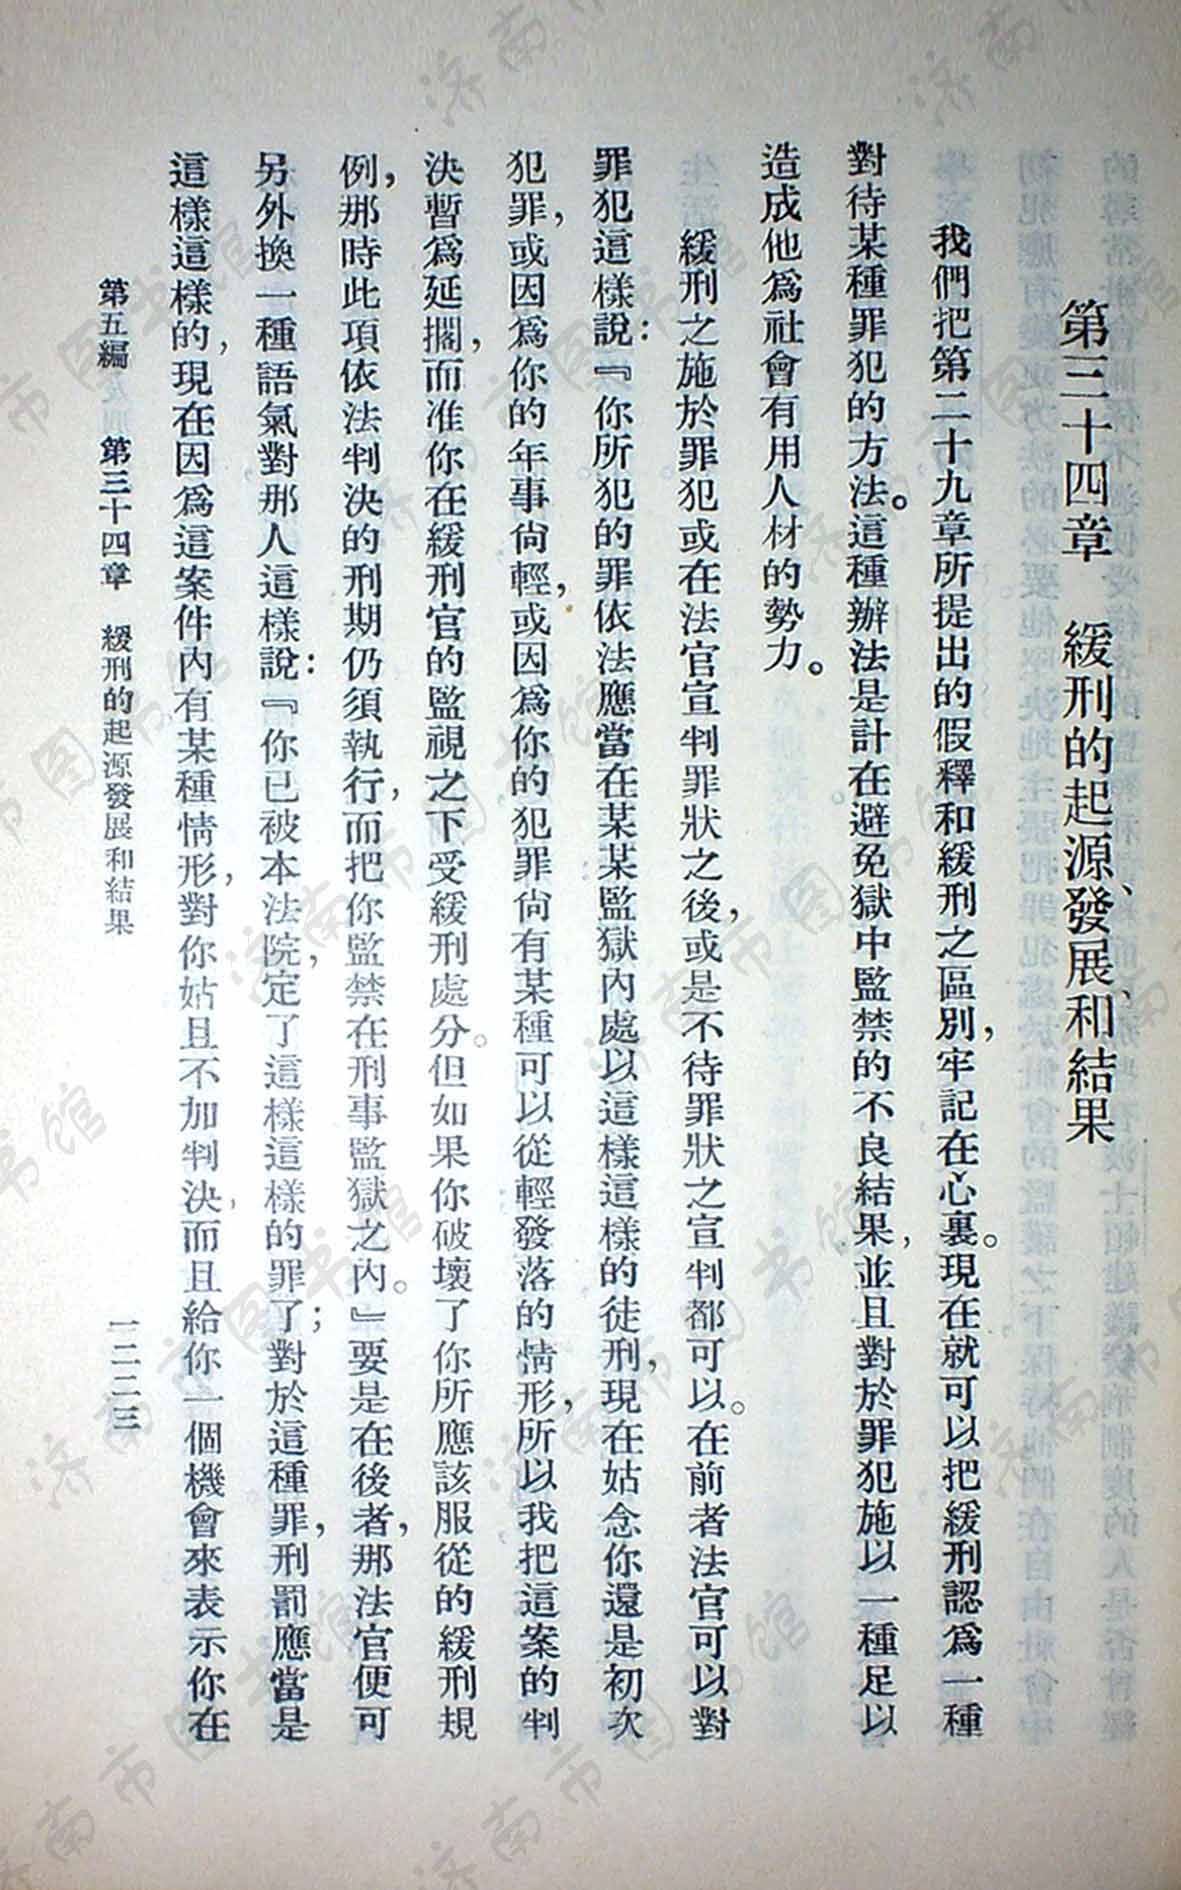 第三十四章　緩刑的起源、發展、和結果
我們把第二十九章所提出的假釋和緩刑之區別，牢記在心裏。現在就可以把緩刑認爲一種
對待某種罪犯的方法。這種辦法是計在避免獄中監禁的不良結果，並且對於罪犯施以一種足以
造成他爲社會有用人材的勢力。
緩刑之施於罪犯或在法官宣判罪狀之後，或是不待罪狀之宣判都可以。在前者法官可以對
罪犯這樣說：『你所犯的罪依法應當在某某監獄內處以這樣這樣的徒刑，現在姑念你還是初次
犯罪，或因爲你的年事尙輕，或因爲你的犯罪尙有某種可以從輕發落的情形，所以我把這案的判
決暫爲延擱，而准你在緩刑官的監視之下受緩刑處分。但如果你破壞了你所應該服從的緩刑規
例，那時此項依法判決的刑期仍須執行，而把你監禁在刑事監獄之內。』要是在後者，那法官便可
另外換一種語氣對那人這樣說：『你已被本法院，定了這樣這樣的罪了；對於這種罪，刑罰應當是
這樣這樣的，現在因爲這案件內有某種情形，對你姑且不加判決，而且給你一個機會來表示你在
第五編　第三十四章　緩刑的起源發展和結果
一二二三
济南市图书馆